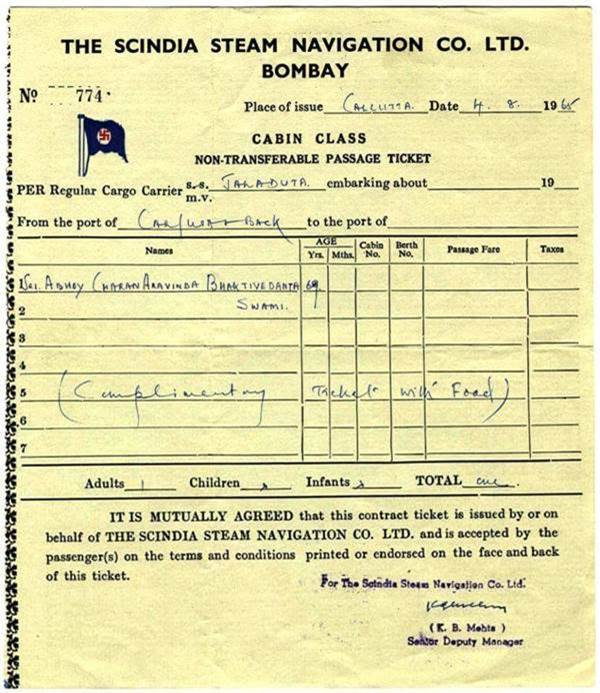 THE SCINDIA STEAM NAVIGATION CO. LTD.
BOMBAY
Nº 774
Place of issue CALCUTTA. Date 4. 8. 1965
CABIN CLASS
NON-TRANSFERABLE PASSAGE TICKET
PER Regular Cargo Carrier s.s. JALADUTA. embarking about 19
m.v.
From the port of Back to the port of
Names AGE Yrs. Mths. Cabin No. Berth No. Passage Fare Taxes
1 Sri. ABHOY CHARAN ARAVINDA BHAKTIVEDANTA 69
2 SWAMI.
3
4
5 (Complimentary Ticket with Food)
6
7
Adults 1 Children x Infants x TOTAL one.
IT IS MUTUALLY AGREED that this contract ticket is issued by or on
behalf of THE SCINDIA STEAM NAVIGATION CO. LTD. and is accepted by the
passenger(s) on the terms and conditions printed or endorsed on the face and back
of this ticket.
For The Scindia Steam Navigation Co. Ltd.
(K. B. Mehta)
Senior Deputy Manager